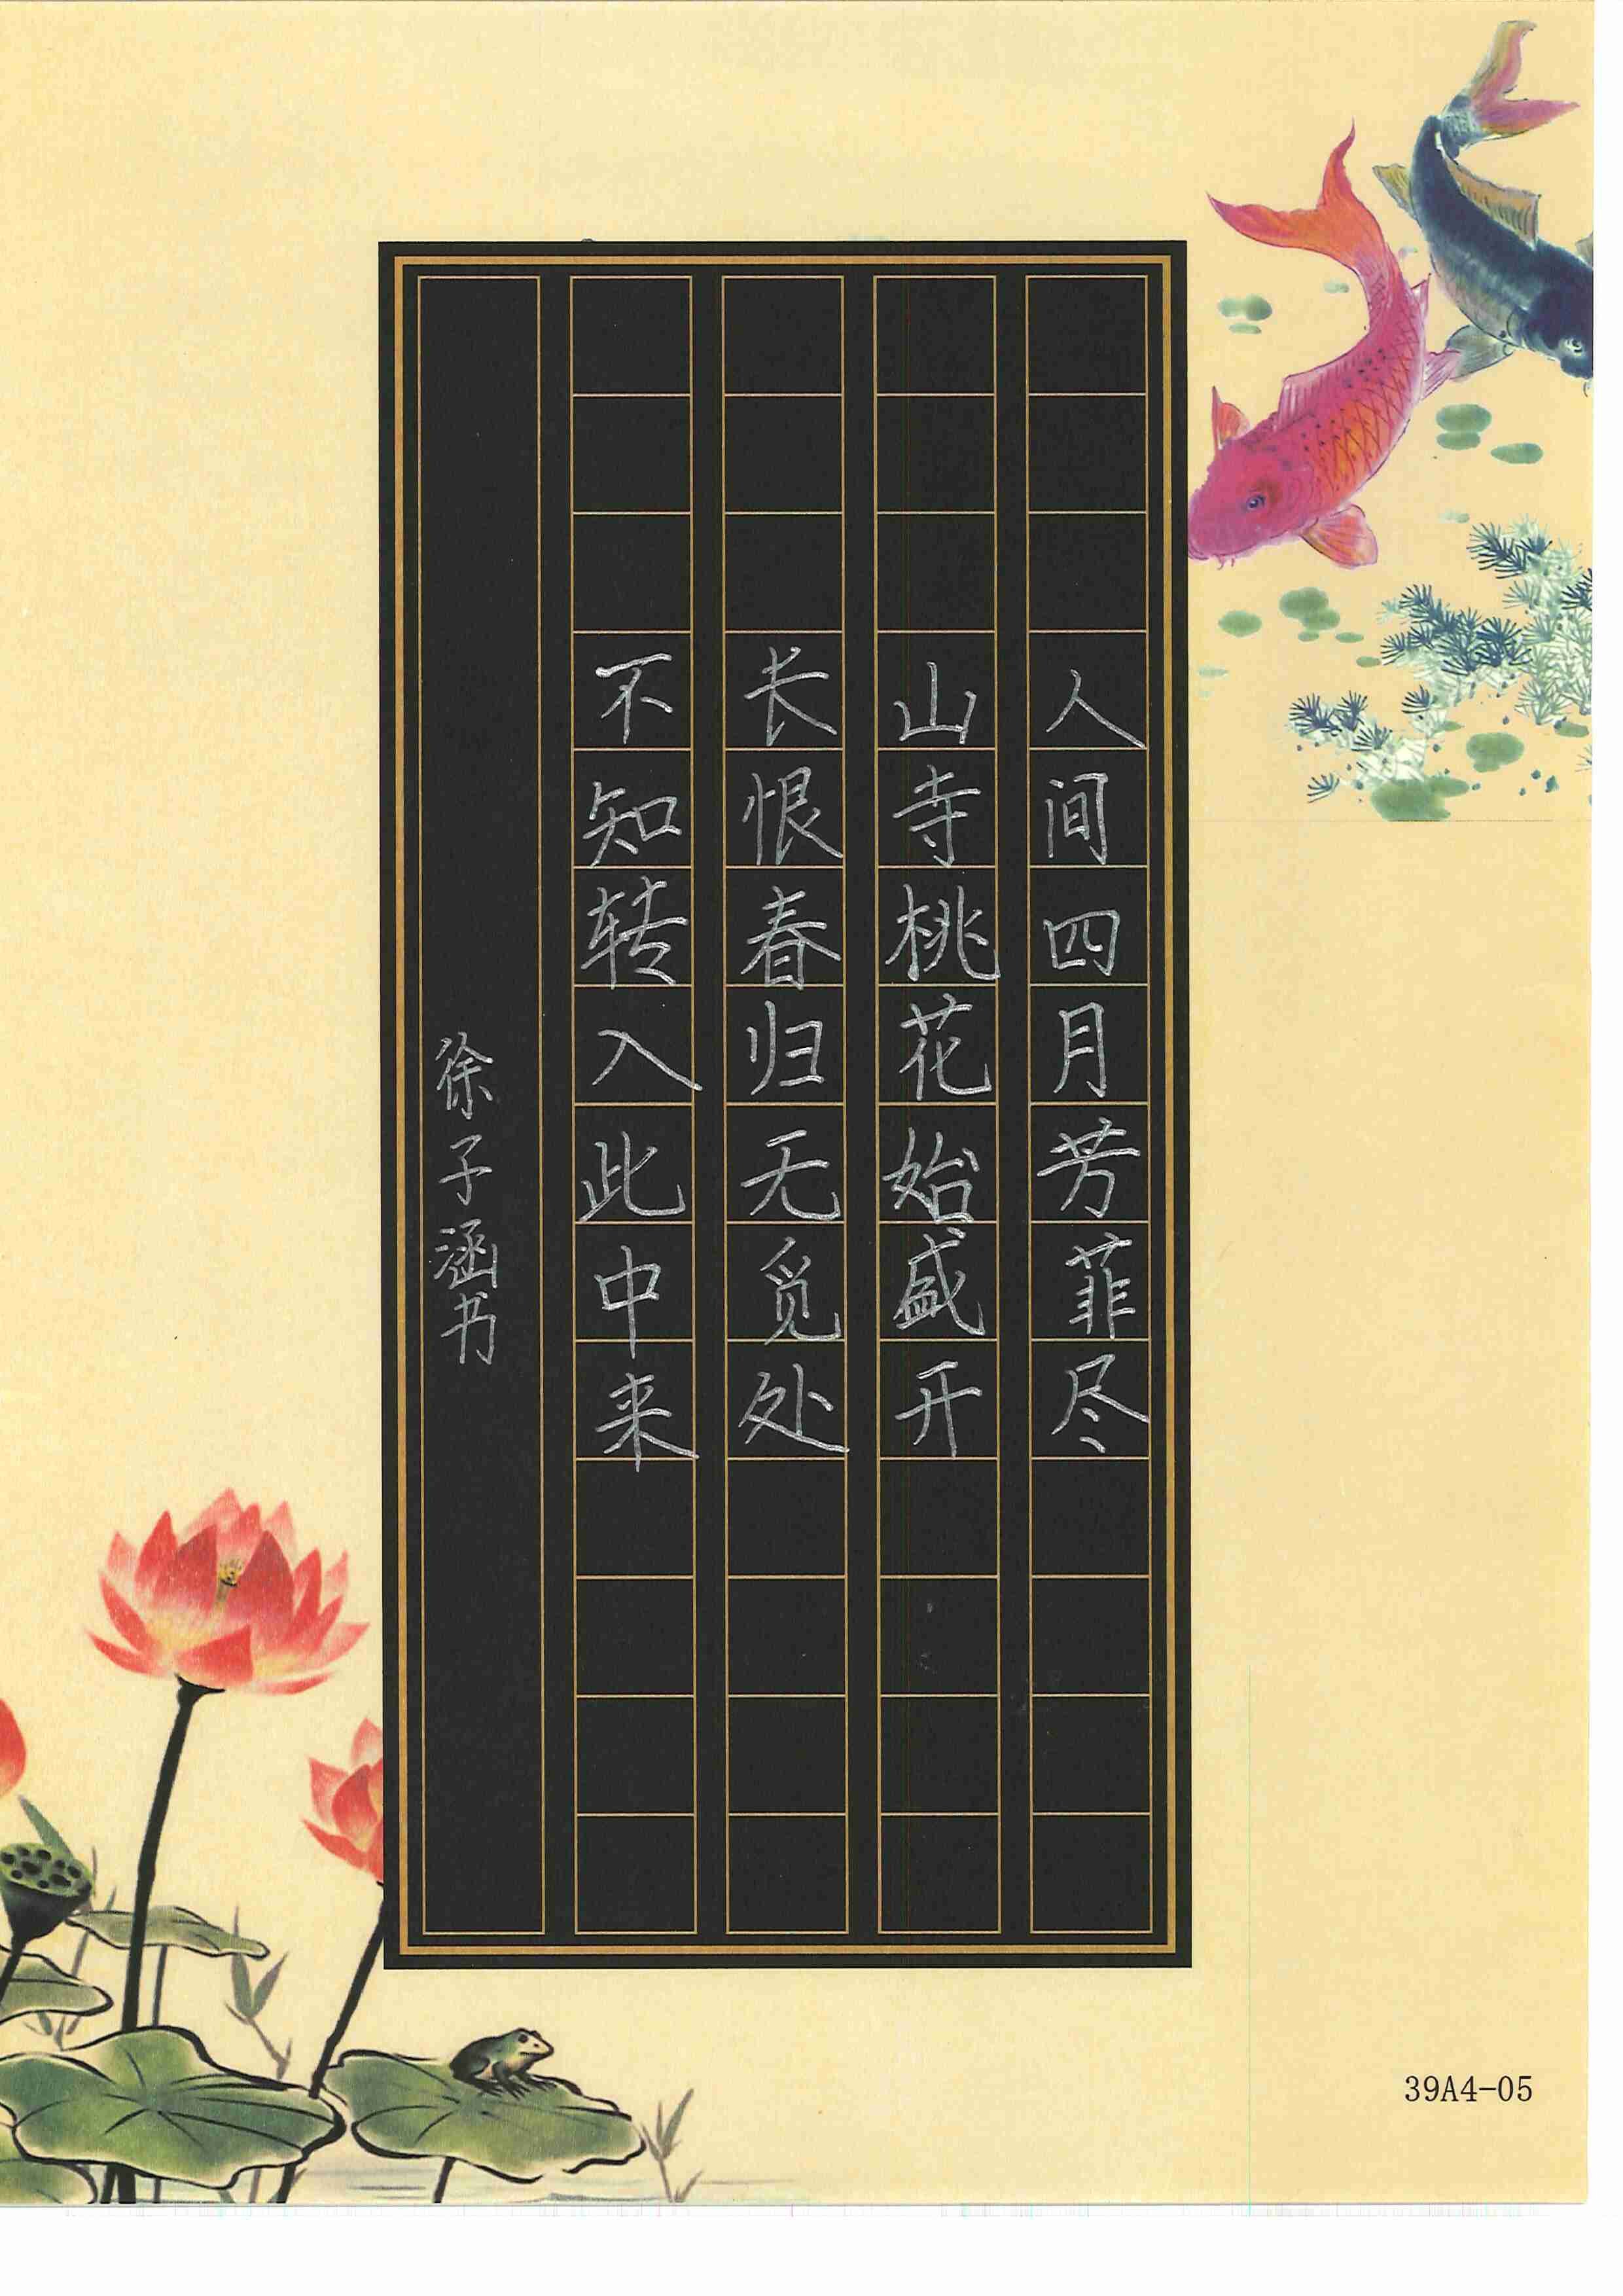 人间四月芳菲尽
山寺桃花始盛开
长恨春归无觅处
不知转入此中来
徐子涵书
39A4-05